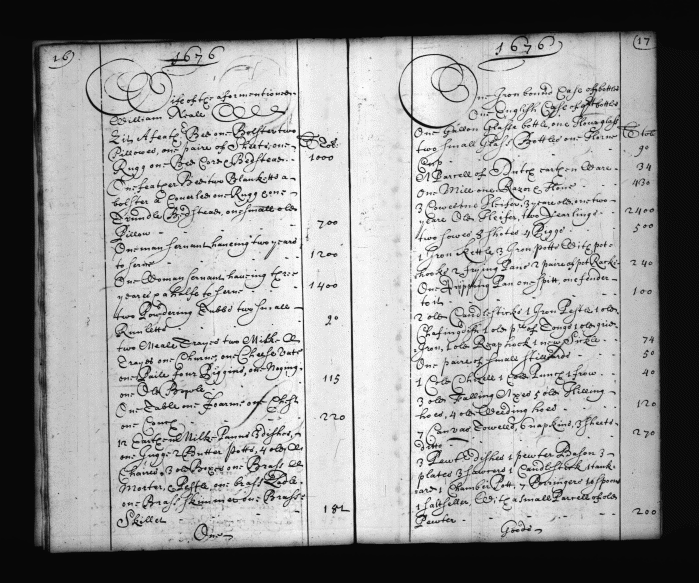 16
1676
Wife of the aforementioned
William Neale
Viz A feather Bed one Bolster two
Pillowes, one paire of Sheets, one
Rugg one Bed Cord & Bedstead
li Tob:
1000
One feather Bed two Blanketts a
bolster a Couerled one Rugg one
Trundle Bedstead, one small old
Pillow
700
One man servant haueing two years
to serue
1200
One Woman servant haueing three
yeares & a halfe to serue
1400
two Powdering Tubbs two small
Runletts
90
two Meale Trayes two Milke
Trayes one Churne, one Cheese Vate
one Paile four Piggins, one
one Old
115
One Table one Foarme one Chest
one Couch
220
12 Earthen Milke Panns 3 dishes,
one Jugg 2 Butter Potts, 4 old
Chaires, 3 old Boxes one Brass
Morter, & Pestle, one brass Ladle
one Brass skimmer one Brass
Skillet
182
One
17
1676
One Iron bound Case of bottles
One English Case of bottles
One Gallon Glasse bottle, one Hourglass
two small Glass Bottles one Horne
li Tob
Cup
90
A Parcell of Dutch earthen Ware
34
One Mill one Razor & Hone
430
3 Cowes two Heifers, 3 yeare old, one two
yeare Old Heifer, two Yearlings
2400
two Sowes 3 Shotes 4 Piggs
500
1 Iron Kettle 3 Iron Potts With pot
hookes 2 frying Pans 2 paire of pot Racks
240
One dripping Pan one Spitt, one fender
to it
100
2 old Candlesticks 1 Iron Pestle 1 old
Chafing dish 1 old pr of Tongs 1 old grid
Iron, 1 old Reaphook 1 new
74
One paire of small stillards
50
1 Cold Chizell 1 old Punch 1 frow
40
3 old Falling Axes 5 old Hilling
hoes, 4 old Weeding hoes
120
7 Canvas Towells, 6 napkins, 3 sheets
ditto
270
3 Pewter dishes 1 pewter Bason 3
plates 3 1 Candlestick 1 tank
ard 1 Chamber Pott, 7 Porringers 16 spoons
1 Saltseller, With a small Parcell of old
Pewter
200
Goods